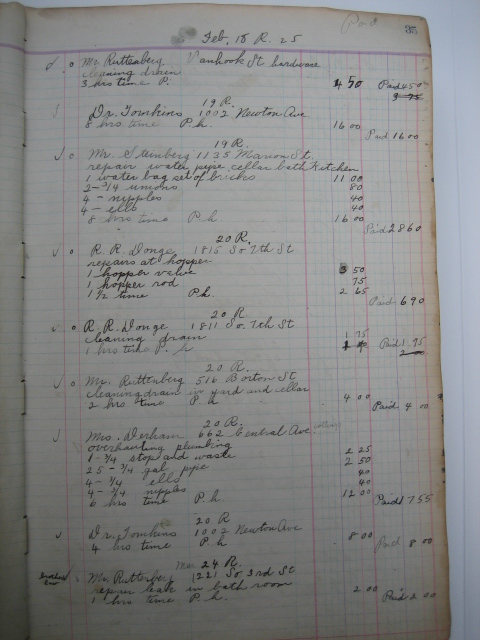 Paid 35
Feb, 18 R. 25
Mr Ruttenberg Vanhook St hardware
cleaning drain
3 hrs time P. 4 50 Paid 4 50
3 75
19 R.
Dr. Tomkins 1002 Newton Ave
8 hrs time P.h. 16 00
Paid 16 00
19 R.
Mr. Steinberg 1135 Marion St.
repair water pipe, cellar bath Kitchen
1 water bag set of bricks 11 00
2-3/4 unions 80
4 - nipples 40
4 - ells 40
8 hrs time P.h 16 00
Paid 28 60
20 R.
R. R. Donge 1815 So 7th St
repairs at hopper
1 hopper valve 3 50
1 hopper rod 75
1 1/2 time P.h. 2 65
Paid 6 90
20 R
R. R. Donge 1811 So. 7th St
cleaning drain 1 75
1 hrs time P. h Paid 1.75
20 R.
Mr. Ruttenberg 516 Borton St
cleaning drain in yard and cellar
2 hrs time P. h 4 00
Paid 4 00
20 R.
Mrs. Derham 662 Central Ave
overhauling plumbing
1-3/4 stop and waste 2 25
25-3/4 gal pipe 2 50
4-3/4 ells 40
4-3/4 nipples 40
6 hrs time P.h 12 00
Paid 17 55
20 R
Dr. Tomkins 1002 Newton Ave
4 hrs time P.h 8 00
Paid 8 00
Mar 24 R.
Mr. Rutterberg 1221 So 3rd St
repair leak in bath room
1 hrs time P.h. 2 00
Paid 2 00